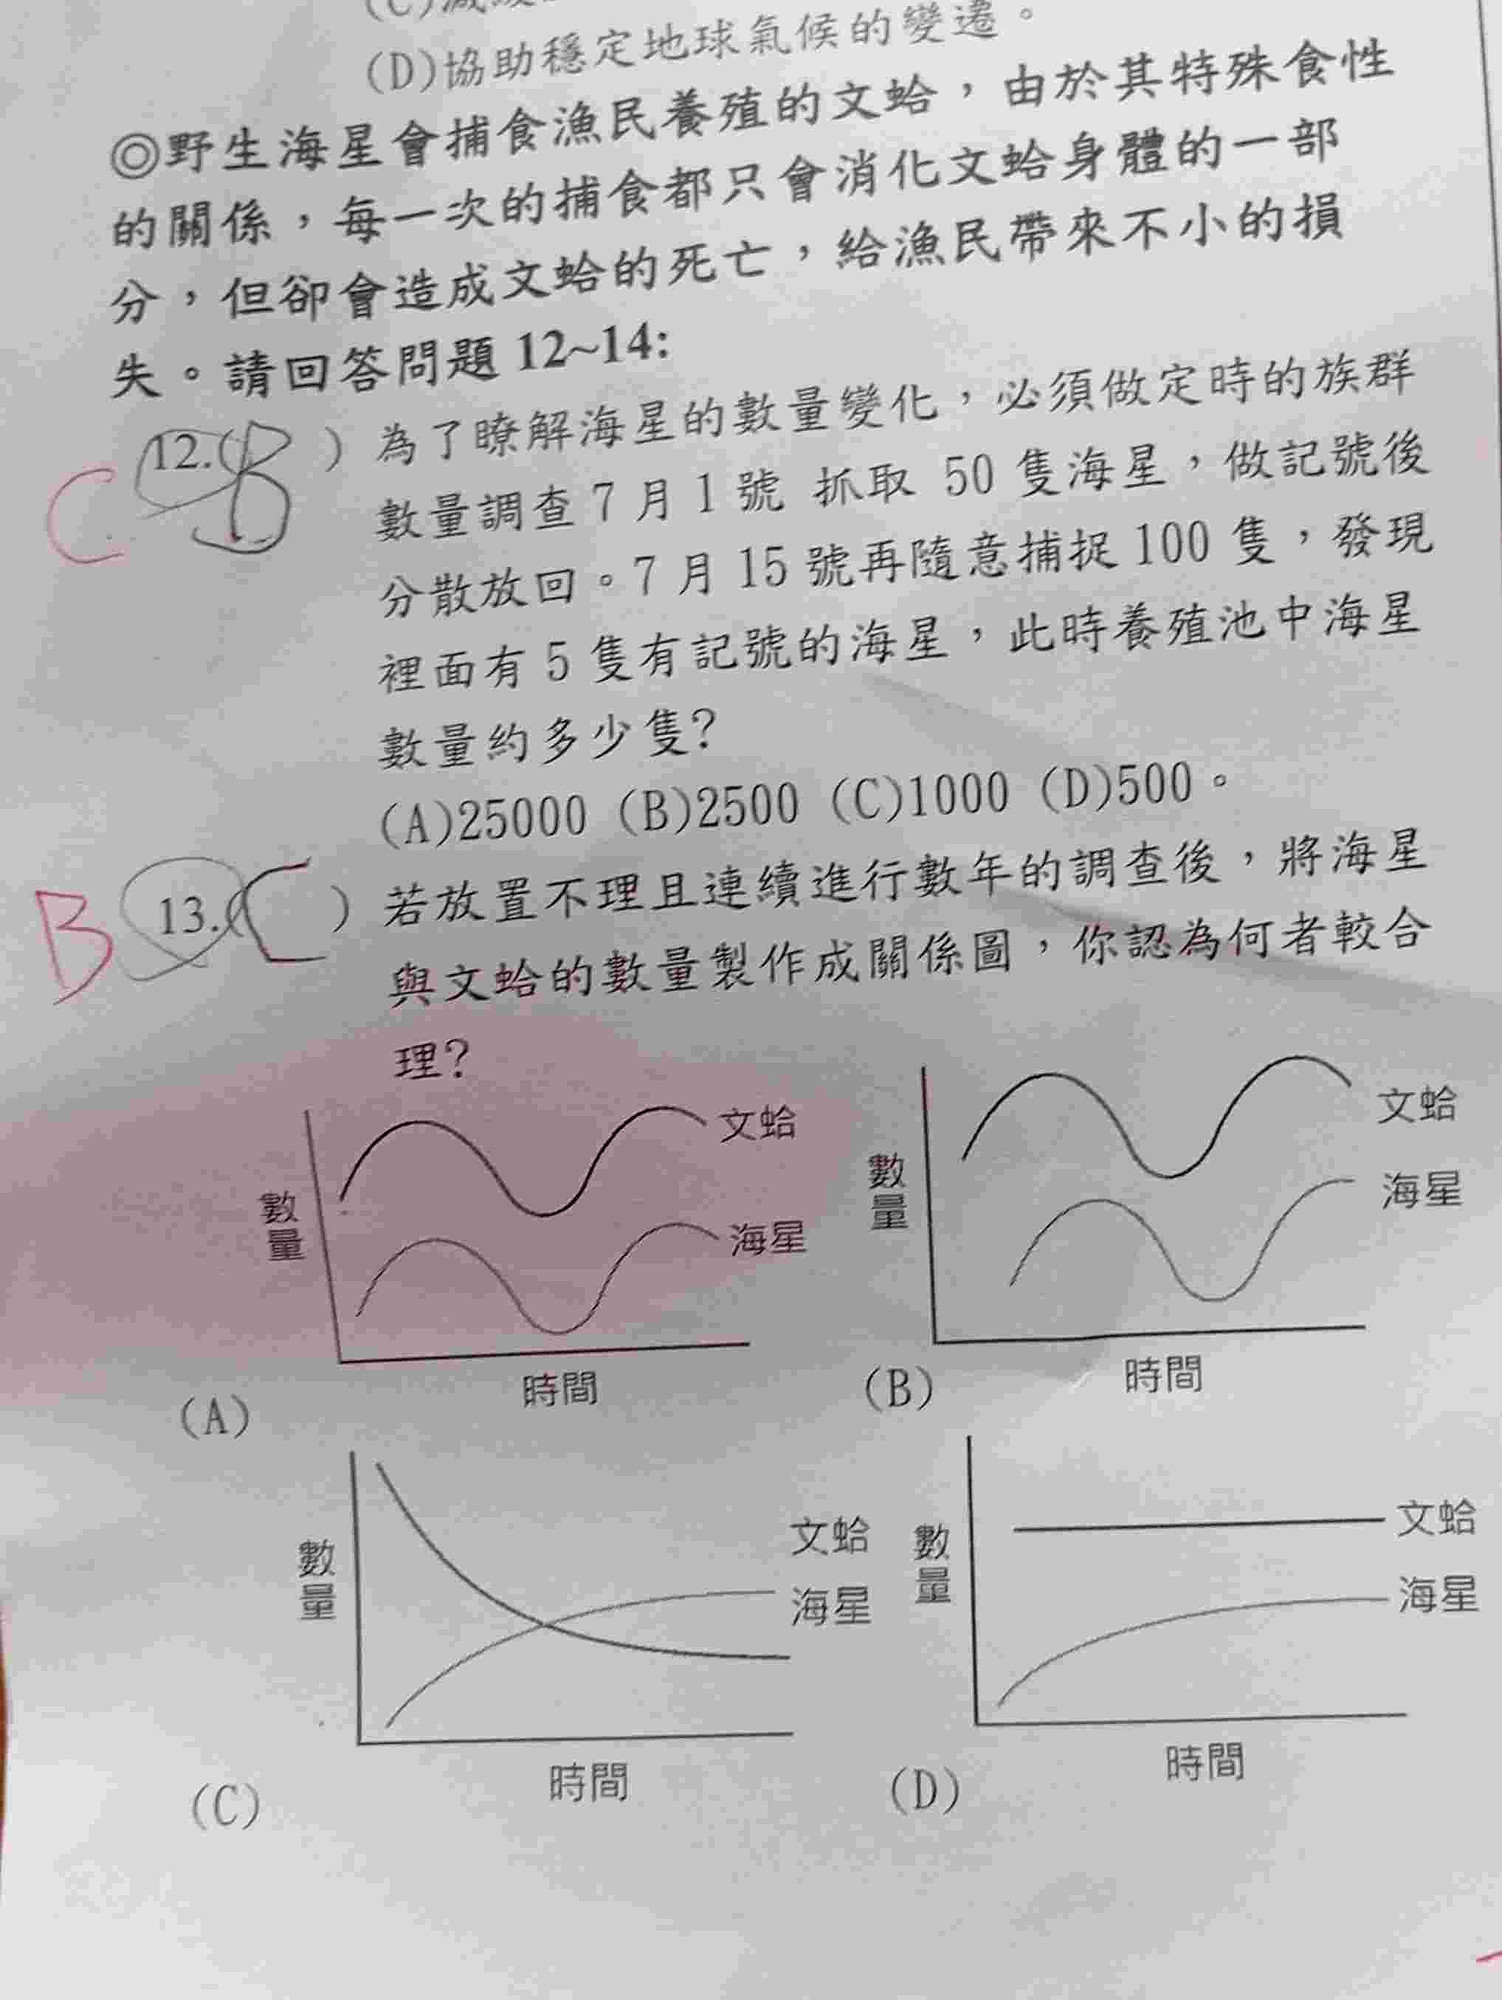 (D)協助穩定地球氣候的變遷。
◎野生海星會捕食漁民養殖的文蛤，由於其特殊食性
的關係，每一次的捕食都只會消化文蛤身體的一部
分，但卻會造成文蛤的死亡，給漁民帶來不小的損
失。請回答問題 12~14:
C 12.(B) 為了瞭解海星的數量變化，必須做定時的族群
數量調查 7 月 1 號 抓取 50 隻海星，做記號後
分散放回。7 月 15 號再隨意捕捉 100 隻，發現
裡面有 5 隻有記號的海星，此時養殖池中海星
數量約多少隻?
(A)25000 (B)2500 (C)1000 (D)500。
B 13.(C) 若放置不理且連續進行數年的調查後，將海星
與文蛤的數量製作成關係圖，你認為何者較合
理?
文蛤
海星
數量
時間
(A)
文蛤
海星
數量
時間
(B)
文蛤
海星
數量
時間
(C)
文蛤
海星
數量
時間
(D)